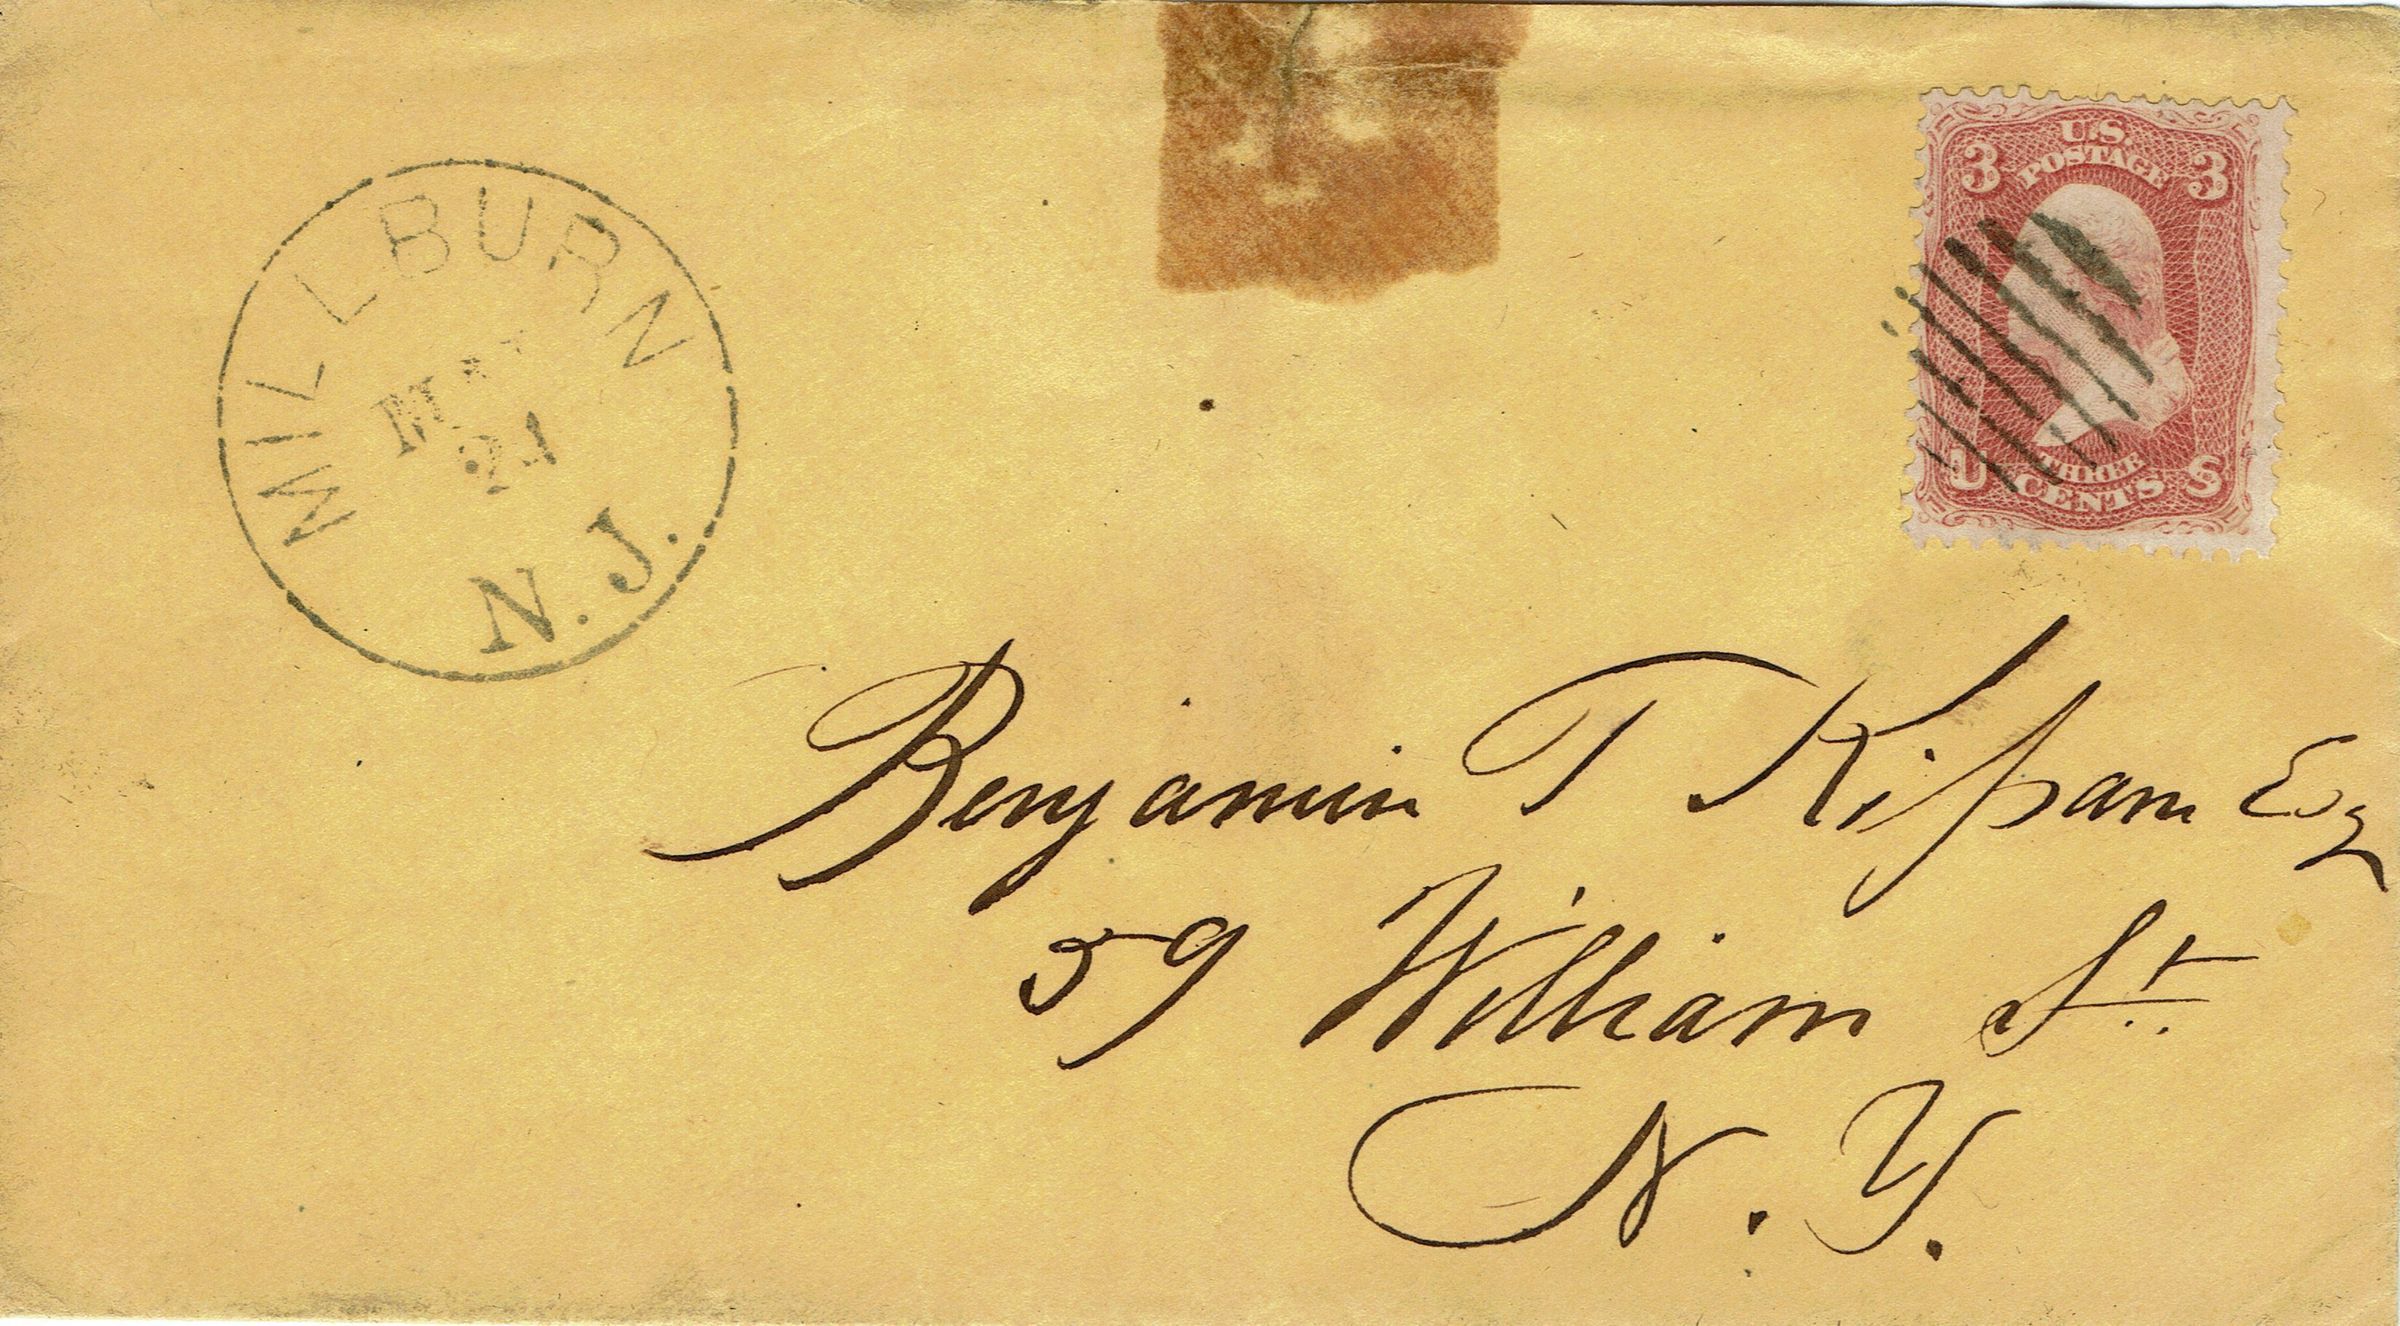 MILLBURN
21
N. J.
U.S.
3 POSTAGE 3
THREE
U CENTS S
Benjamin T Kissam Esq
59 William St.
N. Y.